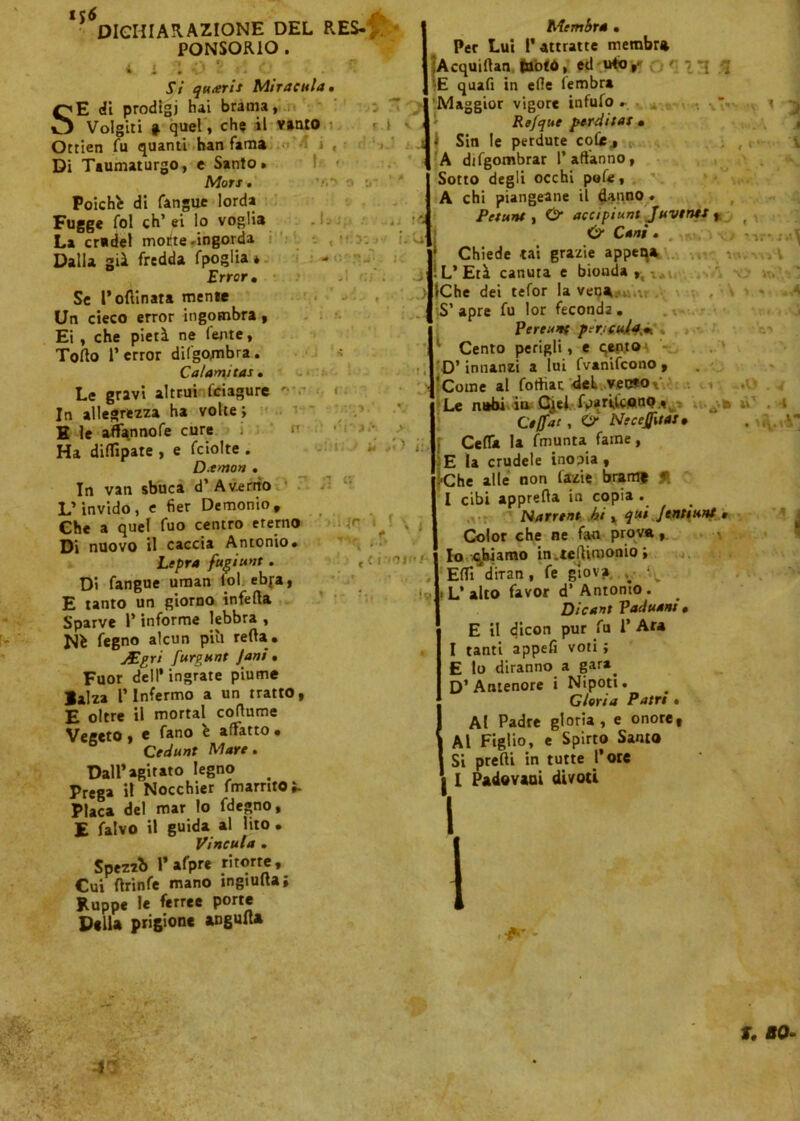 156
DICHIARAZIONE DEL RES-
PONSORIO.
Si quæris Miracula.
SE di prodigj hai brama,
Volgiti a quel, che il vanto
Ottien fu quanti han fama
Di Taumaturgo, e Santo.
Mors.
Poichè di ſangue lorda
Fugge ſol ch' ei lo voglia
La crudel morte ingorda
Dalla già fredda ſpoglia.
Error.
Se l'oſtinata mente
Un cieco error ingombra,
Ei, che pietà ne ſente,
Toſto l'error diſgombra.
Calamitas.
Le gravi altrui ſciagure
In allegrezza ha volte;
E le affannoſe cure
Ha diſſipate, e ſciolte.
Dæmon.
In van sbuca d'Averno
L'invido, e fier Demonio,
Che a quel ſuo centro eterno
Di nuovo il caccia Antonio.
Lepra fugiunt.
Di ſangue uman ſol ebra,
E tanto un giorno infeſta
Sparve l'informe lebbra,
Nè ſegno alcun più reſta.
Ægri ſurgunt ſani.
Fuor dell' ingrate piume
Balza l'Infermo a un tratto,
E oltre il mortal coſtume
Vegeto, e ſano è affatto.
Cedunt Mare.
Dall'agitato legno
Prega il Nocchier ſmarrito;
Placa del mar lo ſdegno,
E ſalvo il guida al lito.
Vincula.
Spezzò l'aſpre ritorte,
Cui ſtrinſe mano ingiuſta;
Ruppe le ferree porte
Della prigione anguſta
Membra.
Per Lui l'attratte membra
Acquiſtan ed uſo,
E quaſi in eſſe ſembra
Maggior vigore infuſo.
Reſque perditas.
Sin le perdute coſe,
A diſgombrar l'affanno,
Sotto degli occhi poſe,
A chi piangeane il danno.
Petunt, & accipiunt Juvenes,
& Cani.
Chiede tai grazie appena
L'Età canuta e bionda,
Che dei teſor la vena
S'apre ſu lor feconda.
Pereunt pericula.
Cento perigli, e cento
D'innanzi a lui ſvaniſcono,
Come al ſoffiar del vento
Le nubi in Ciel ſpariſcono.
Ceſſat, & Neceſſitas.
Ceſſa la ſmunta fame,
E la crudele inopia,
Che alle non ſazie brame
I cibi appreſta in copia.
Narrent hi, qui ſentiunt.
Color che ne fan prova,
Io chiamo in teſtimonio;
Eſſi diran, ſe giova
L'alto favor d'Antonio.
Dicant Paduani.
E il dicon pur ſu l'Ara
I tanti appeſi voti;
E lo diranno a gara
D'Antenore i Nipoti.
Gloria Patri.
Al Padre gloria, e onore,
Al Figlio, e Spirto Santo
Si preſti in tutte l'ore
I Padovani divoti